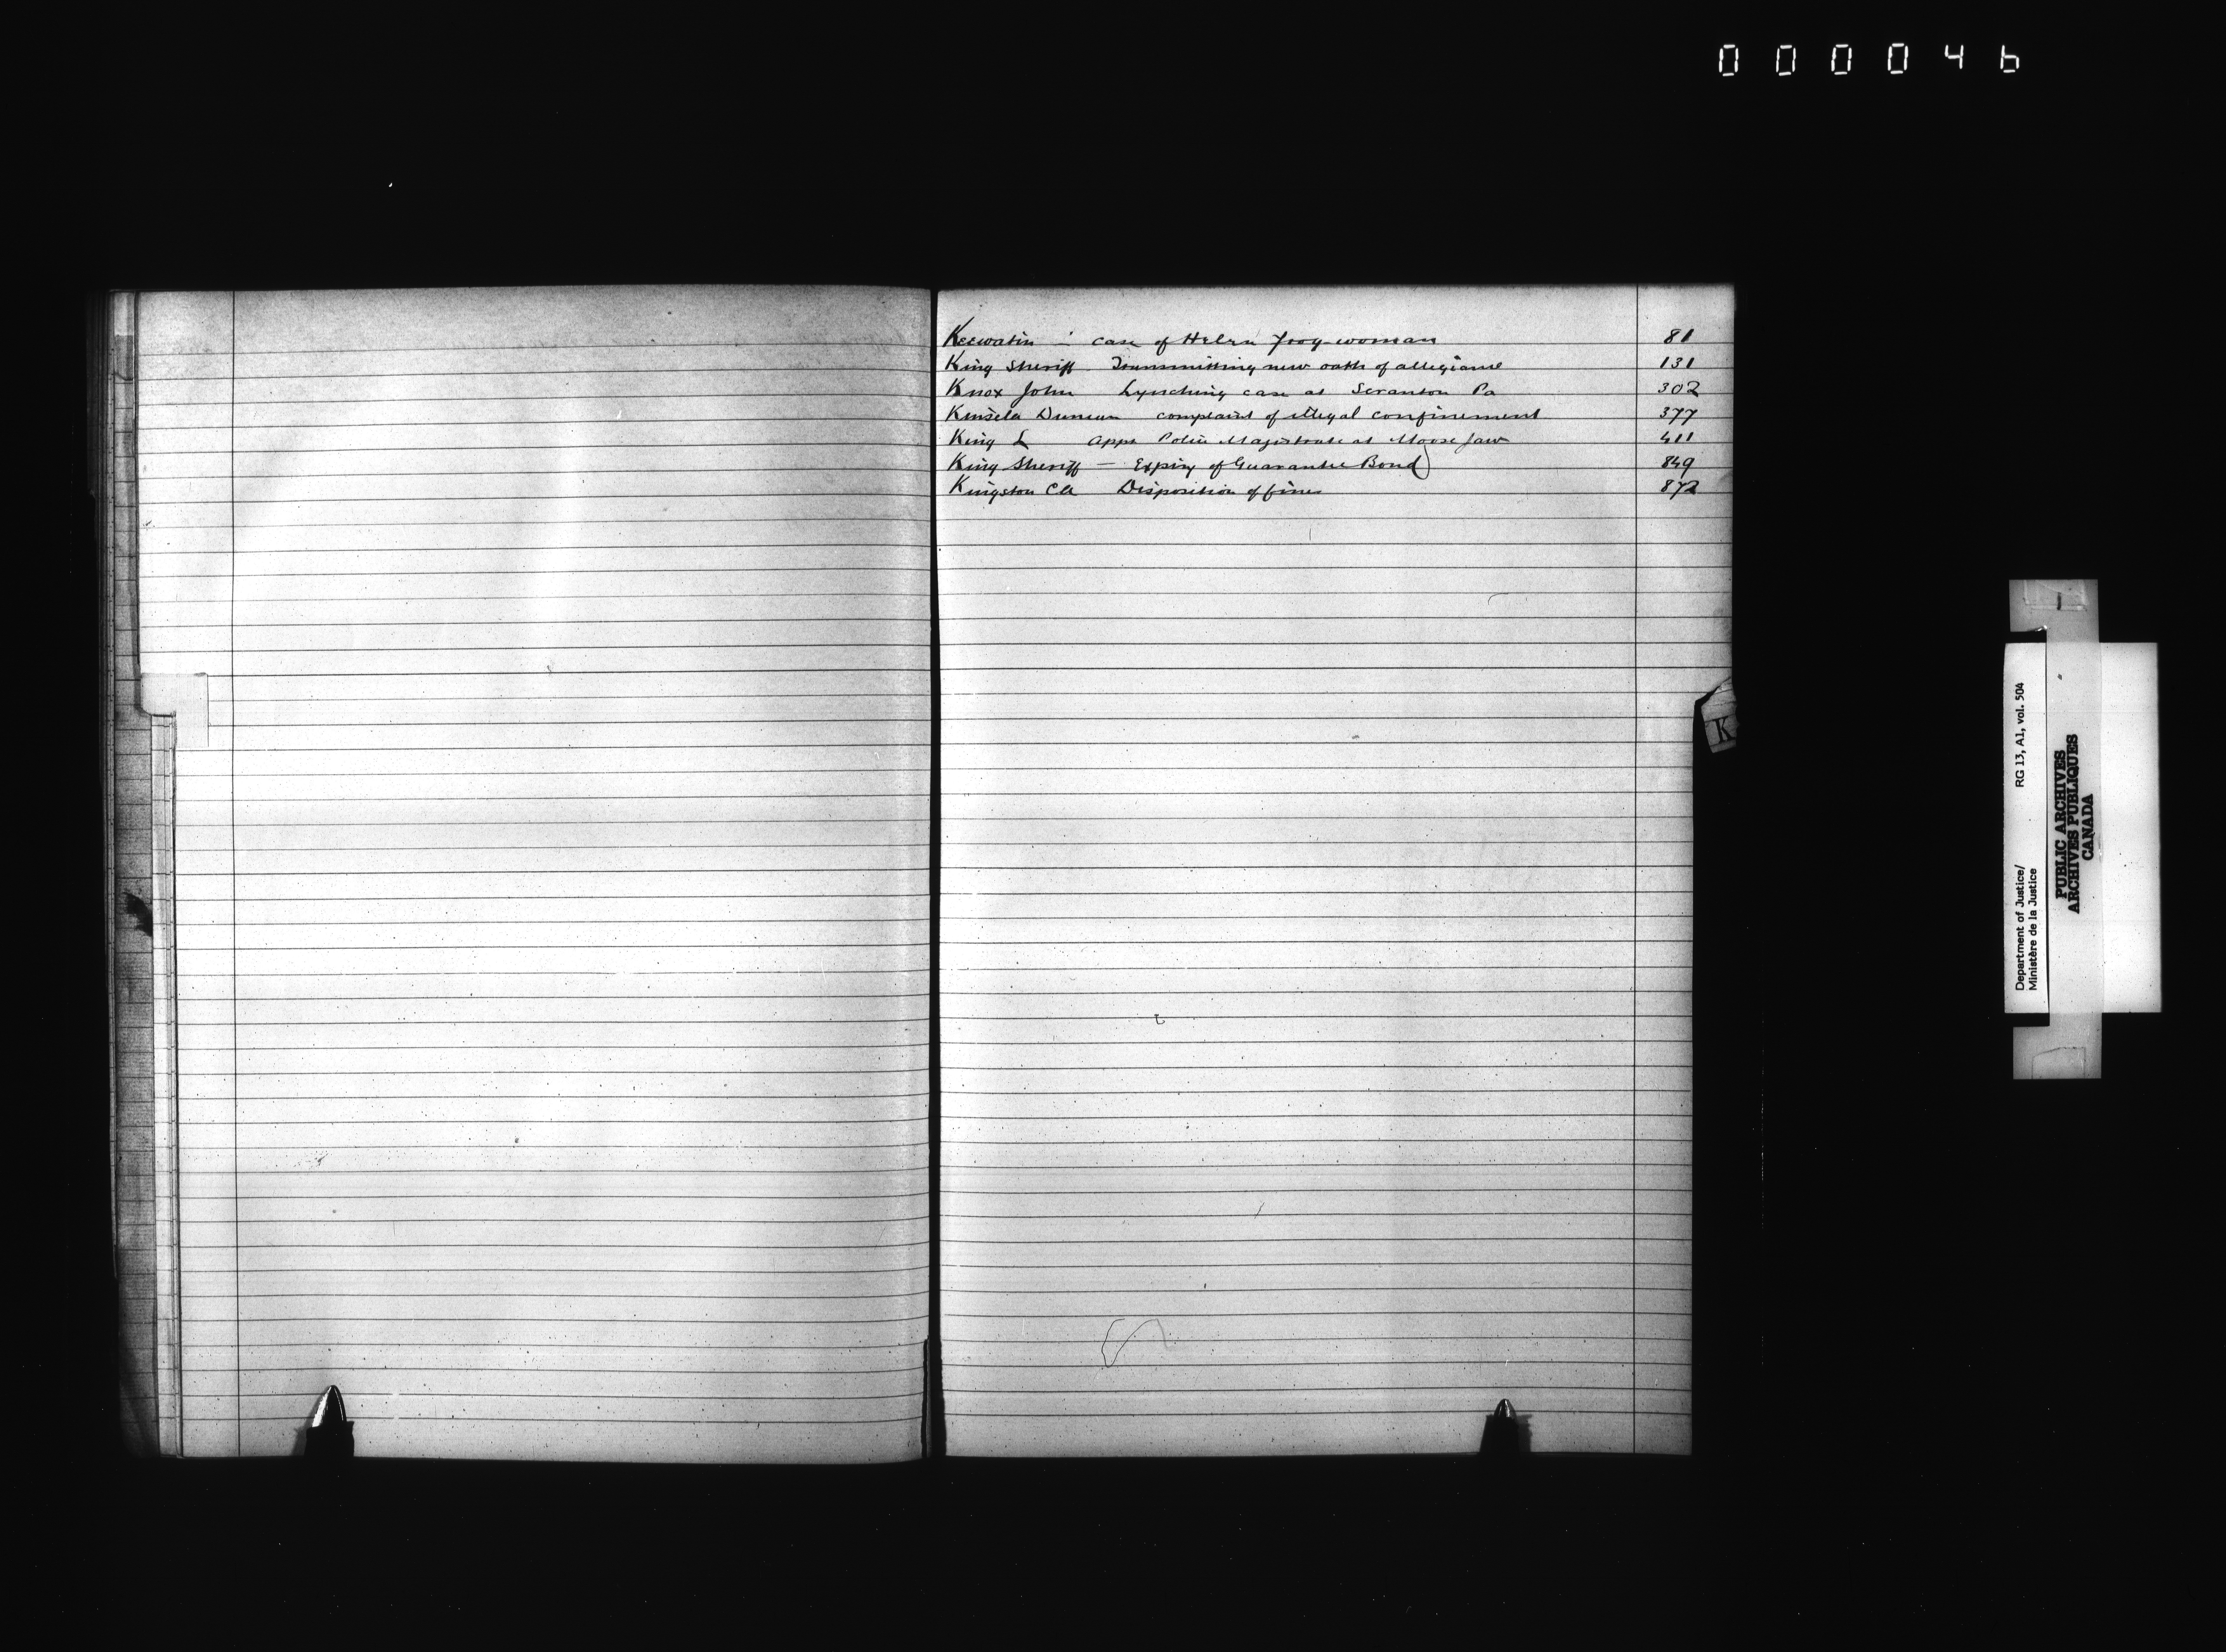 000046
Keewatin - case of Helen Frog-woman 81
King Sheriff Transmitting new oath of allegiance 131
Knox John Lynching case at Scranton Pa 302
Kinsela Duncan complaint of illegal confinement 377
King L Appt Police Magistrate at Moose Jaw 411
King Sheriff — Expiry of Guarantee Bond 849
Kingston Disposition of fines 872
K
Department of Justice/ RG 13, A1, vol. 504
Ministère de la Justice
PUBLIC ARCHIVES
ARCHIVES PUBLIQUES
CANADA